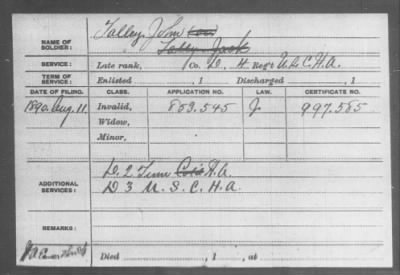 NAME OF SOLDIER: Talley, John (col)
Talley, Jack
SERVICE: Late rank, , Co. D, 4 Reg't U.S.C.H.A.
TERM OF SERVICE: Enlisted , 1 Discharged , 1
DATE OF FILING. CLASS. APPLICATION NO. LAW. CERTIFICATE NO.
1890 Aug. 11 Invalid, 803.545 J. 997.585
Widow,
Minor,
ADDITIONAL SERVICES: D. 2 Tenn Col'd H.A.
D 3 U.S.C.H.A.
REMARKS:
Died , 1 , at